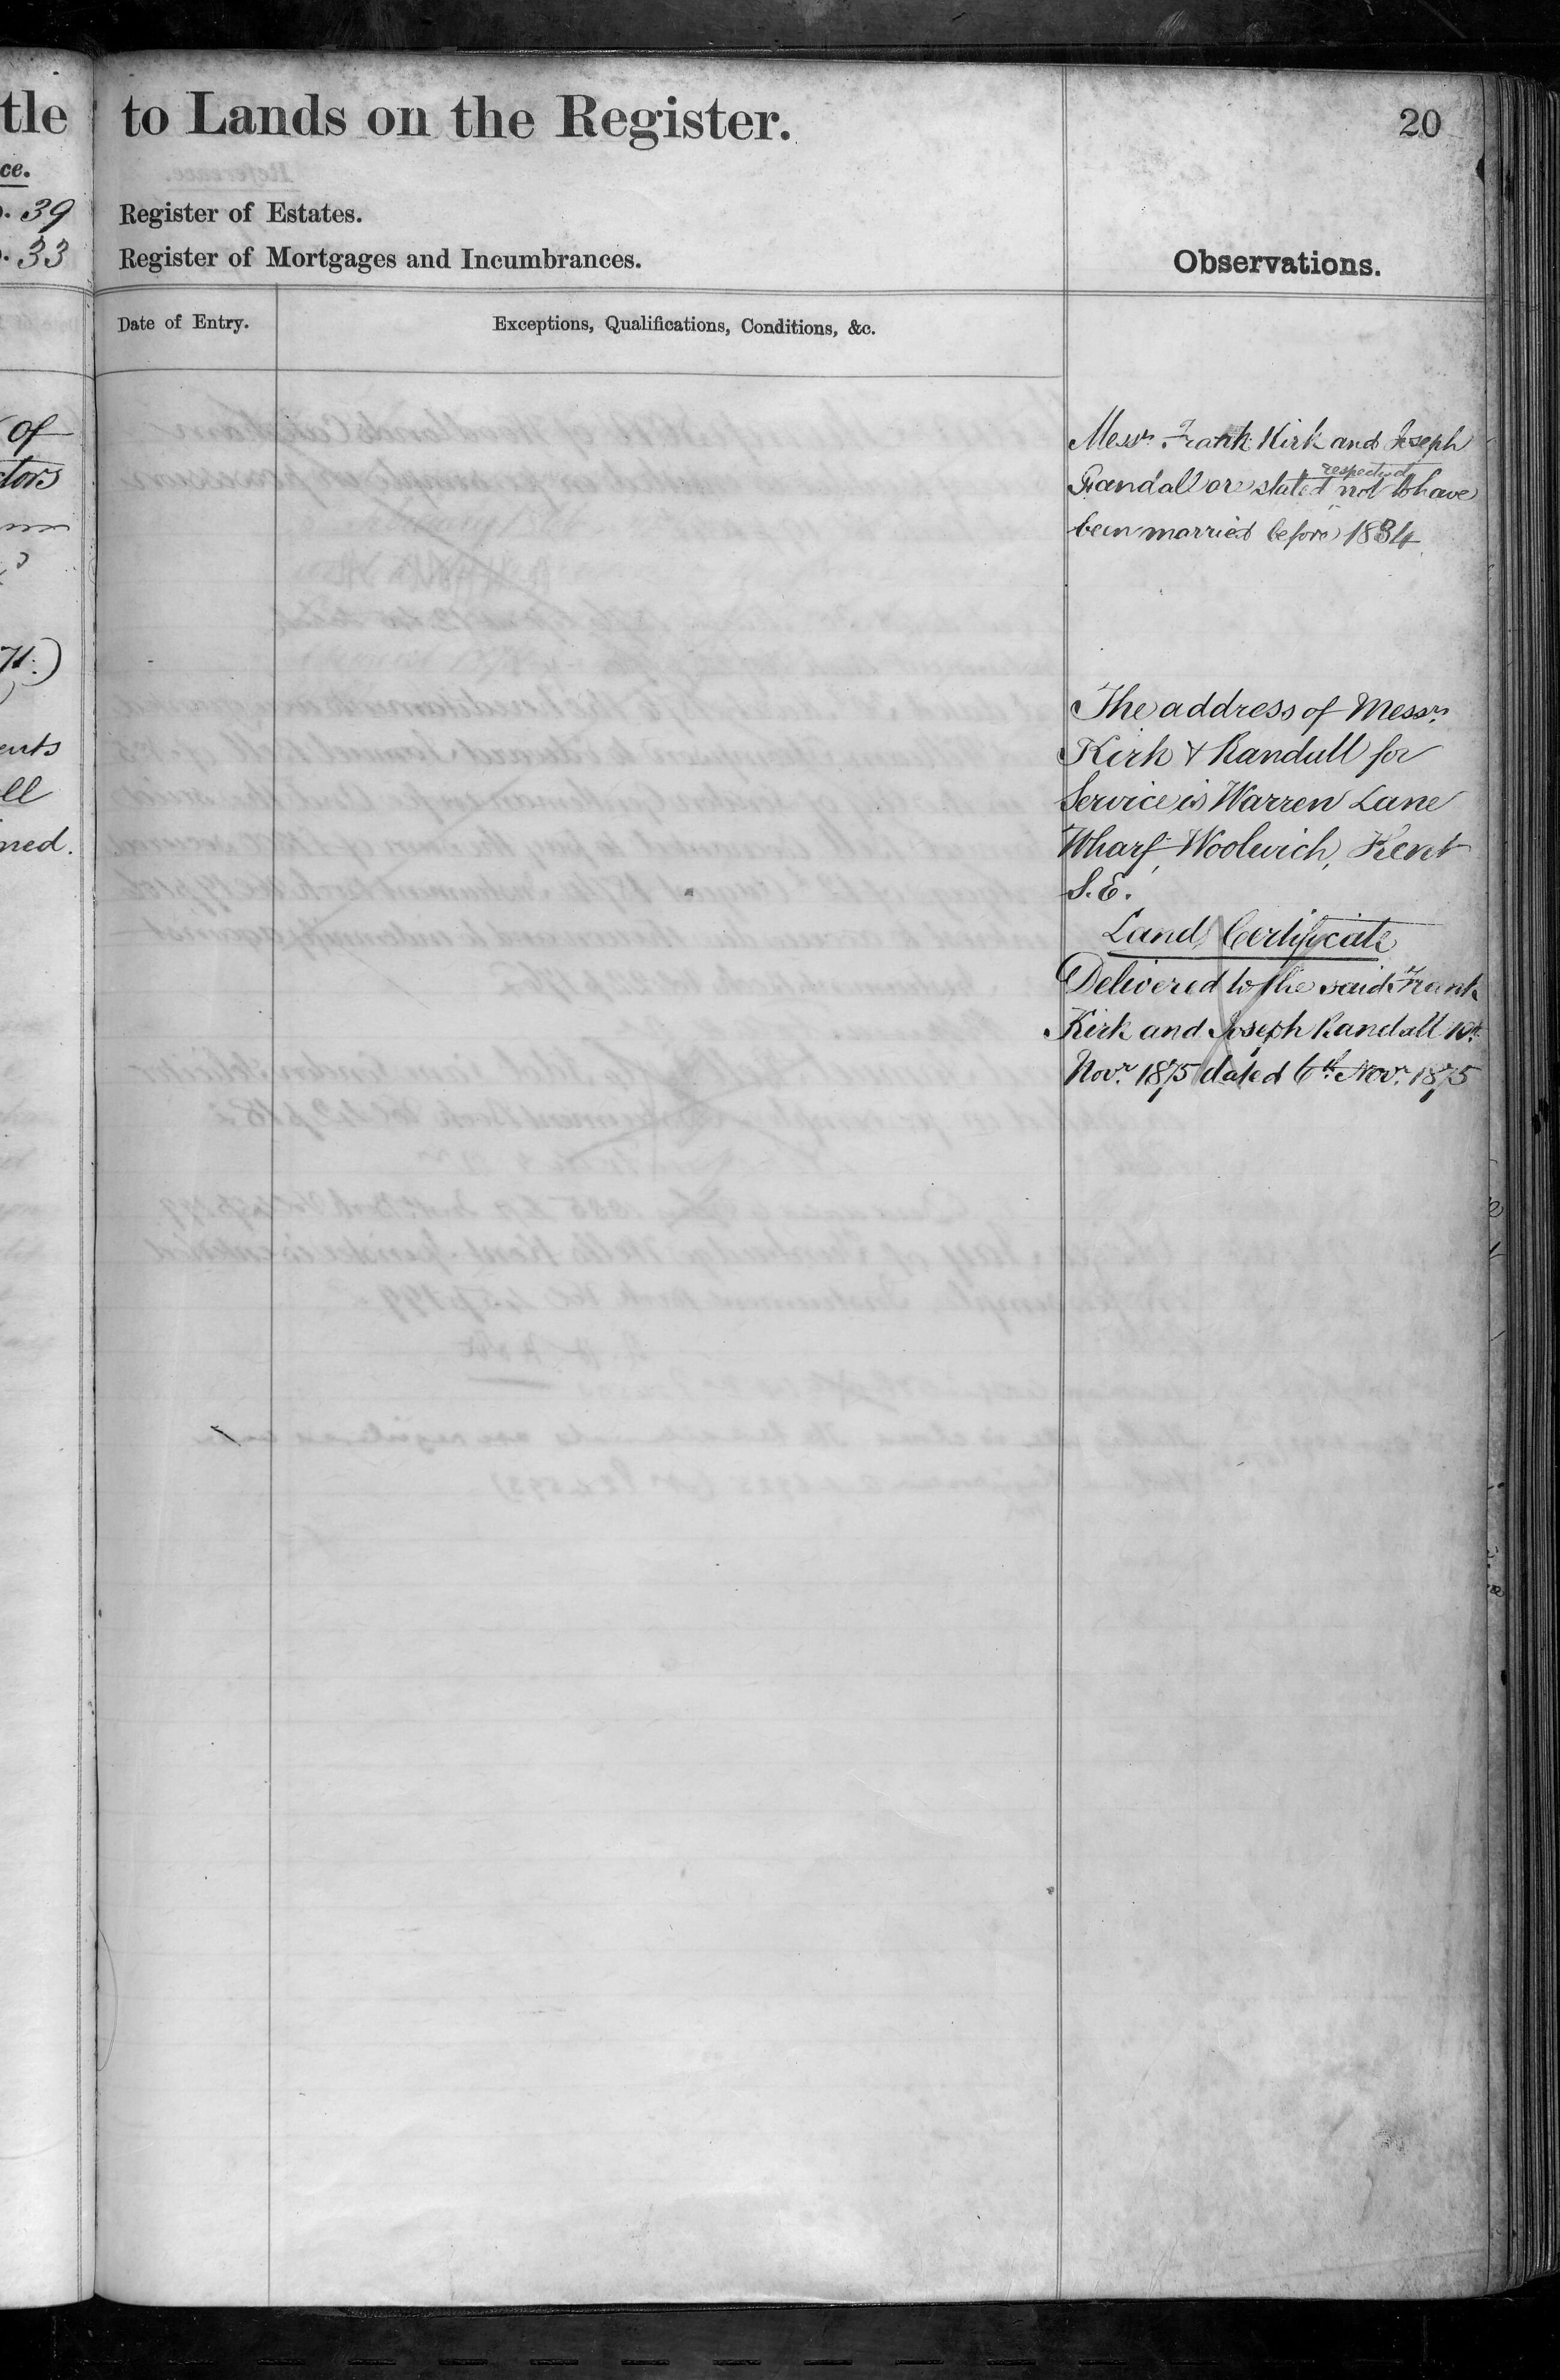 tle to Lands on the Register. 20
ce.
. 39 Register of Estates.
. 33 Register of Mortgages and Incumbrances.
Observations.
Date of Entry. Exceptions, Qualifications, Conditions, &c.
of
ctors
71.)
ents
ell
ned.
Messrs. Frank Kirk and Joseph
respectively
Randall are stated not to have
been married before 1834
The address of Messrs.
Kirk & Randall for
Service is Warren Lane
Wharf, Woolwich, Kent
S.E.
Land Certificate
Delivered to the said Frank
Kirk and Joseph Randall 10th
Novr. 1875 dated 6th Novr. 1875